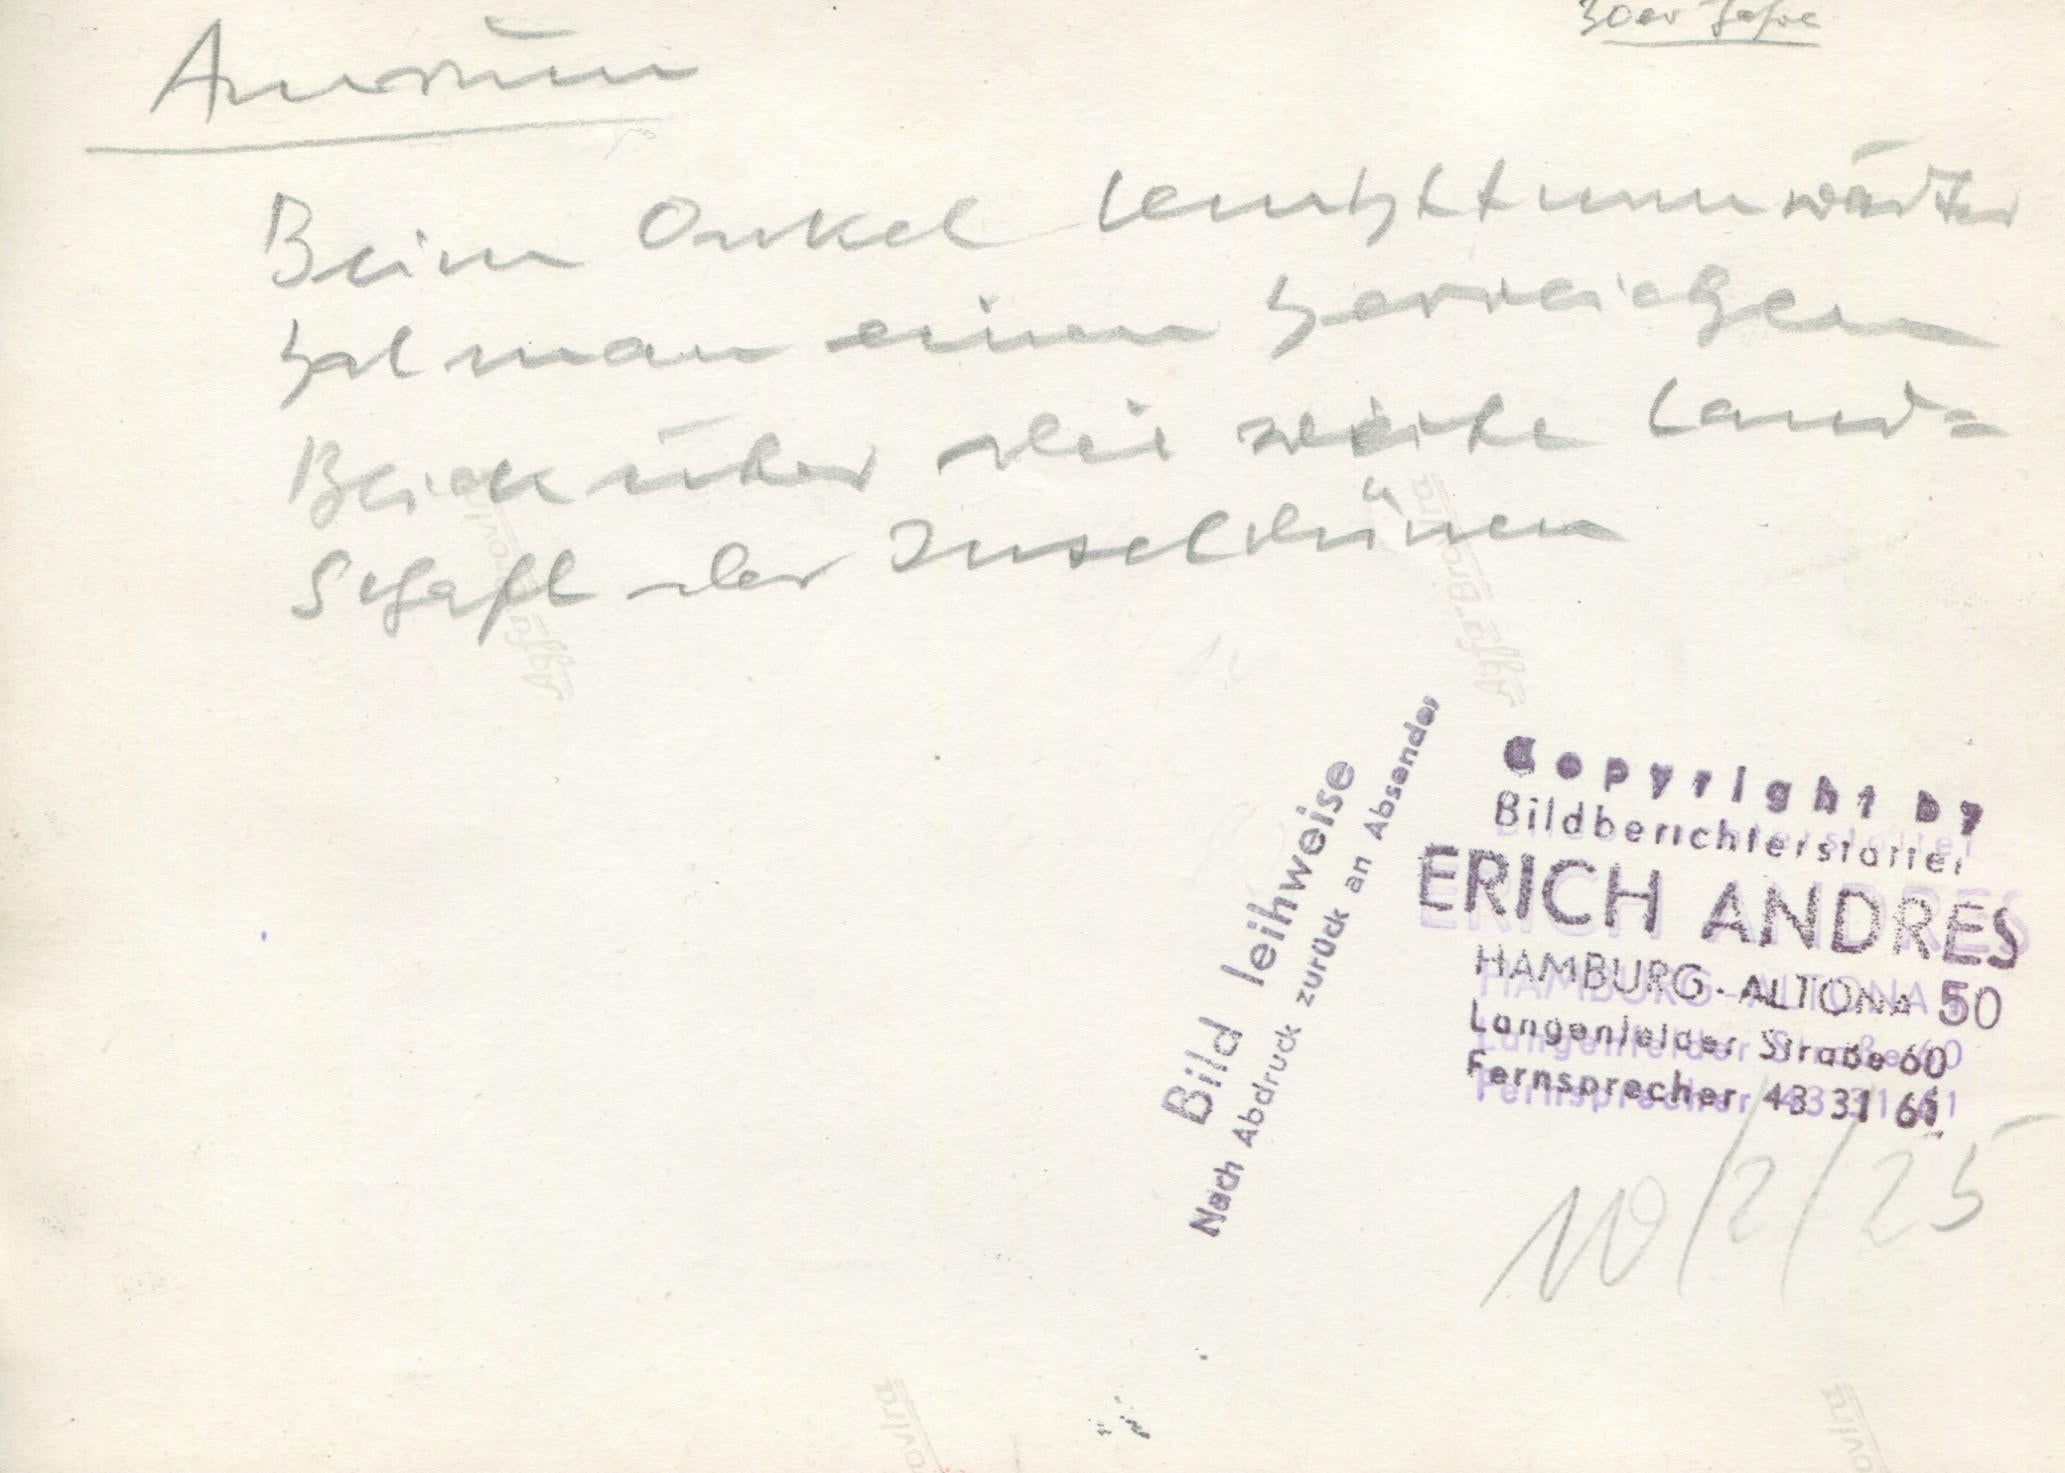 30er Jahre
Amrum
Beim Onkel Leuchtturmwärter
hat man einen herrlichen
Blick über die weite Land=
Schaft der Inseldünen
Bild leihweise
Nach Abdruck zurück an Absender
Copyright by
Bildberichterstatter
ERICH ANDRES
HAMBURG-ALTONA 50
Langenfelder Straße 60
Fernsprecher 43 31 61
10/2/25
Agfa-Brovira
Agfa-Brovira